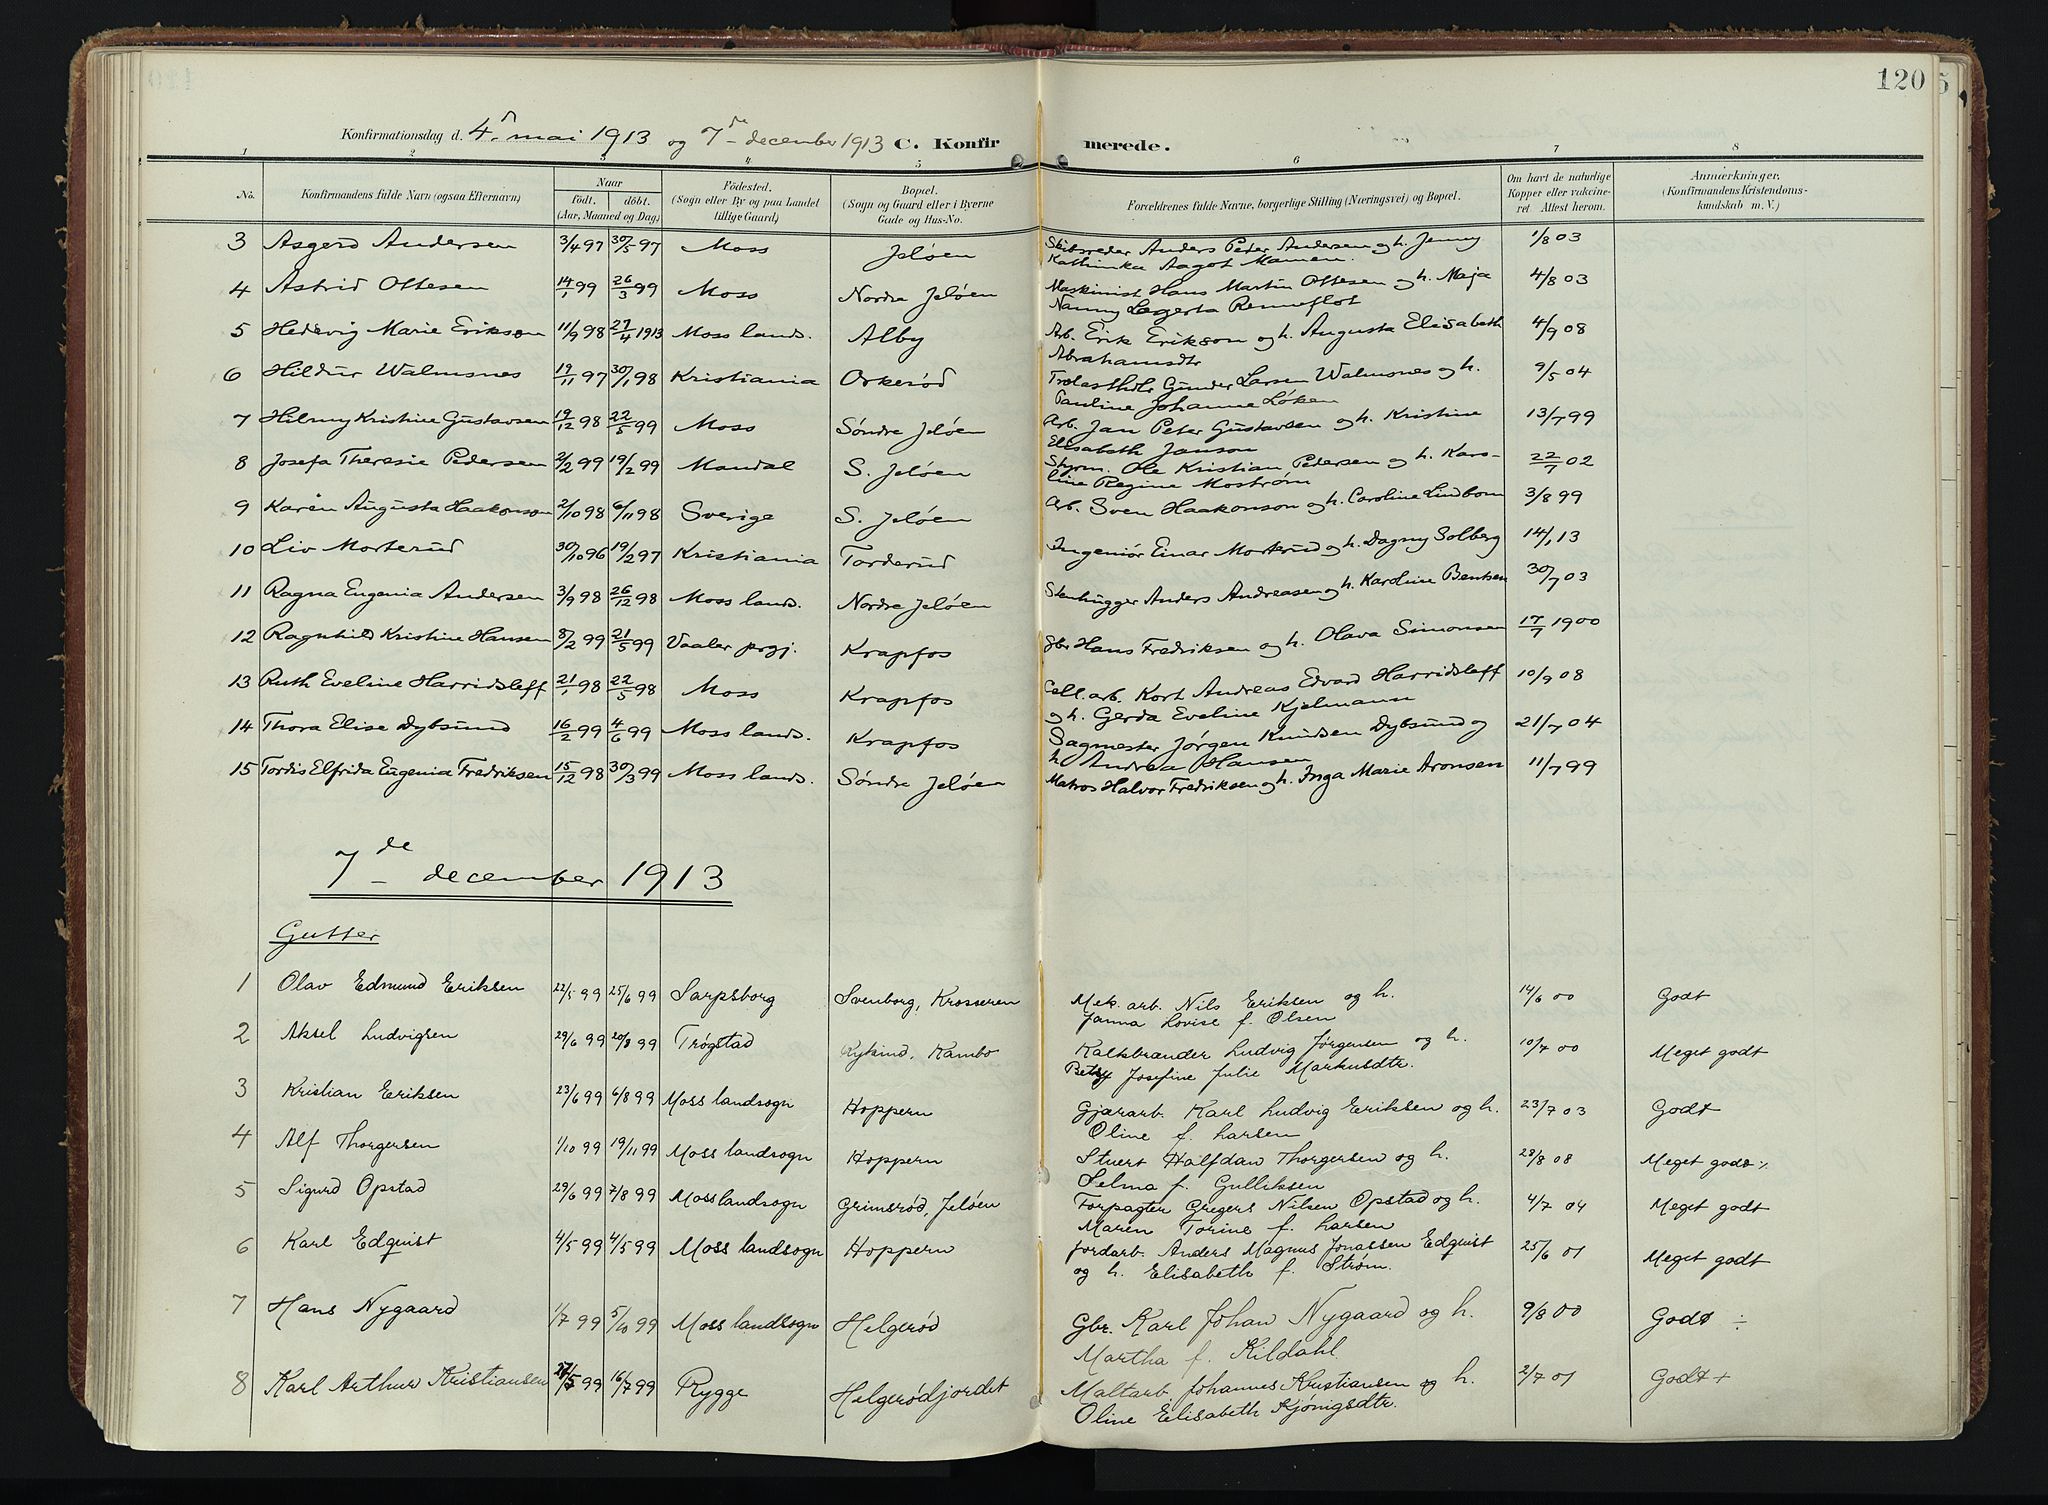 120
Konfirmationsdag d. 4. mai 1913 og 7de december 1913 C. Konfirmerede.
1 2 3 4 5 6 7 8
No. Konfirmandens fulde Navn (ogsaa Efternavn) Naar født. døbt. (Aar, Maaned og Dag) Fødested. (Sogn eller By og paa Landet tillige Gaard) Bopæl. (Sogn og Gaard eller i Byerne Gade og Hus-No. Forældrenes fulde Navne, borgerlige Stilling (Næringsvei) og Bopæl. Om havt de naturlige Kopper eller vaccineret. Attest herom. Anmærkninger. (Konfirmandens Kristendomskundskab m. V.)
3 Asgerd Andersen 3/4 97 30/5 97 Moss Jeløen Skibsreder Anders Peder Andersen og h. Jenny 1/8 03
Kathinka Aagot Mamen.
4 Astrid Ottesen 14/1 99 26/3 99 Moss Nordre Jeløen Maskinist Hans Martin Ottesen og h. Maja 4/8 03
Nanny Lagerta Renneflot
5 Hedevig Marie Erikson 11/9 98 27/4 1913 Moss lands. Alby Arb. Erik Erikson og h. Augusta Elisabeth 4/9 08
Abrahamsdtr
6 Hildur Walmsnes 19/11 97 30/1 98 Kristiania Orkerød Trælasthdlr Gunder Larsen Walmsnes og h. 9/5 04
Pauline Johanne Løken
7 Hilmy Kristine Gustavsen 19/12 98 22/5 99 Moss Søndre Jeløen Arb. Jan Peter Gustavsen og h. Kristine 13/7 99
Elisabeth Janson
8 Josefa Theresie Pedersen 2/2 99 19/2 99 Mandal S. Jeløen Styrm. Ole Kristian Pedersen og h. Karo- 22/7 02
line Regine Mostrøm
9 Karen Augusta Haakonson 2/10 98 6/11 98 Sverige S. Jeløen Arb. Sven Haakonson og h. Caroline Lindbom 3/8 99
10 Liv Morterud 30/10 96 19/2 97 Kristiania Torderud Ingeniør Einar Morterud og h. Dagny Solberg 14/1 13
11 Ragna Eugenia Andersen 3/9 98 26/12 98 Moss lands. Nordre Jeløen Stenhugger Anders Andreasen og h. Karoline Bentsen 30/7 03
12 Ragnhild Kristine Hansen 8/2 99 21/5 99 Vaaler prgj. Krapfos Gbr Hans Fredriksen og h. Olava Simonsen 17/7 1900
13 Ruth Eveline Harridsleff 21/1 98 22/5 98 Moss Krapfos Cell. arb. Kort Andreas Edvard Harridsleff 10/9 08
og h. Gerda Eveline Kjelmann
14 Thora Elise Dybsund 16/2 99 4/6 99 Moss lands. Krapfos Sagmester Jørgen Knudsen Dybsund og 21/7 04
h. Andrea Hansen
15 Tordis Elfrida Eugenia Fredriksen 15/12 98 30/3 99 Moss lands. Søndre Jeløen Matros Halvor Fredriksen og h. Inga Marie Aronsen 11/7 99
7de december 1913
Gutter
1 Olav Edmund Eriksen 22/5 99 25/6 99 Sarpsborg Svenborg, Krosseren Mek. arb. Nils Eriksen og h. 14/6 00 Godt
Janna Lovise f. Olsen
2 Aksel Ludvigsen 29/6 99 20/8 99 Trøgstad Rykind, Kambo Kalkbrænder Ludvig Jørgensen og h. 10/7 00 Meget godt
Betsy Josefine Julie Markusdtr.
3 Kristian Eriksen 23/6 99 6/8 99 Moss landsogn Hoppern Gjærarb. Karl Ludvig Eriksen og h. 23/7 03 Godt
Oline f. Larsen
4 Alf Thorgersen 1/10 99 19/11 99 Moss landsogn Hoppern Stuert Halfdan Thorgersen og h. 28/8 08 Meget godt ÷
Selma f. Gulliksen
5 Sigurd Opstad 29/6 99 7/8 99 Moss landsogn Grimsrød, Jeløen Forpagter Gregers Nilsen Opstad og h. 4/7 04 Meget godt
Maren Torine f. Larsen
6 Karl Edquist 4/5 99 4/5 99 Moss landsogn Hoppern Jordarb. Anders Magnus Jonassen Edquist 25/6 01 Meget godt
og h. Elisabeth f. Strøm.
7 Hans Nygaard 1/7 99 5/10 99 Moss landsogn Helgerød Gbr. Karl Johan Nygaard og h. 9/8 00 Godt ÷
Martha f. Kildahl.
8 Karl Arthur Kristiansen 99 16/7 99 Rygge Helgerødjordet Maltarb. Johannes Kristiansen og h. 2/7 01 Godt +
Oline Elisabeth Kjønigsdtr.